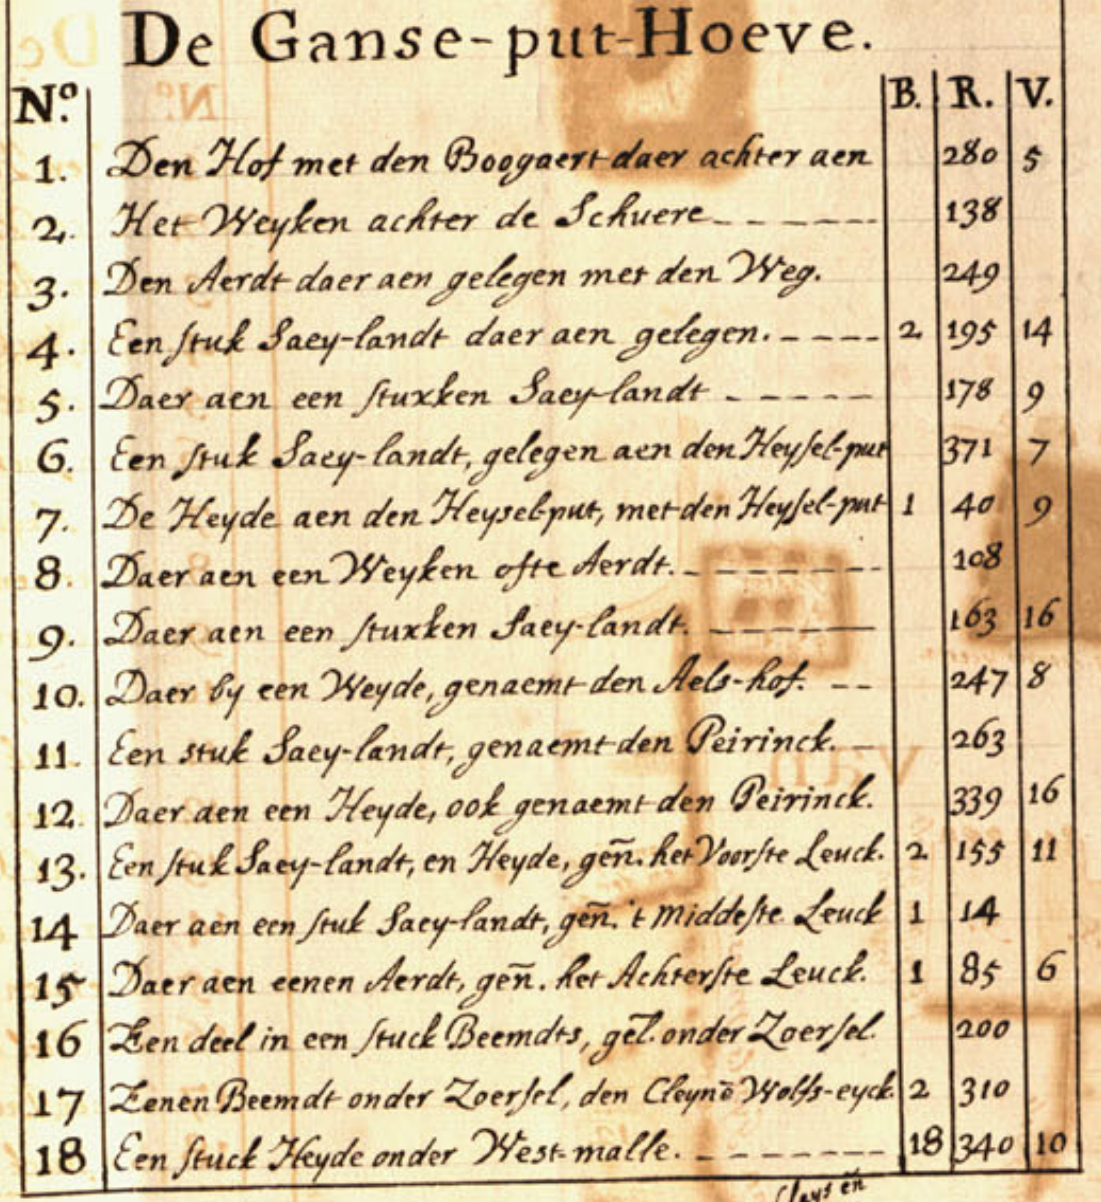 De Ganse-put-Hoeve.
N.º B. R. V.
1. Den Hof met den Boogaert daer achter aen 280 5
2. Het Weyken achter de Schuere 138
3. Den Aerdt daer aen gelegen met den Weg. 249
4. Een stuk Saey-landt daer aen gelegen. 2 195 14
5. Daer aen een stuxken Saey-landt 178 9
6. Een stuk Saey-landt, gelegen aen den Heysel-put 371 7
7. De Heyde aen den Heysel-put, met den Heysel-put 1 40 9
8. Daer aen een Weyken ofte Aerdt. 108
9. Daer aen een stuxken Saey-landt. 163 16
10. Daer by een Weyde, genaemt den Aels-hof. 247 8
11. Een stuk Saey-landt, genaemt den Peirinck. 263
12. Daer aen een Heyde, ook genaemt den Peirinck. 339 16
13. Een stuk Saey-landt, en Heyde, geñ. het Voorste Leuck. 2 155 11
14 Daer aen een stuk Saey-landt, geñ. 't Middeste Leuck 1 14
15 Daer aen eenen Aerdt, geñ. het Achterste Leuck. 1 85 6
16 Een deel in een stuck Beemdts, gel. onder Zoersel. 200
17 Eenen Beemdt onder Zoersel, den Cleynē Wolfs-eyck. 2 310
18 Een stuck Heyde onder West-malle. 18 340 10